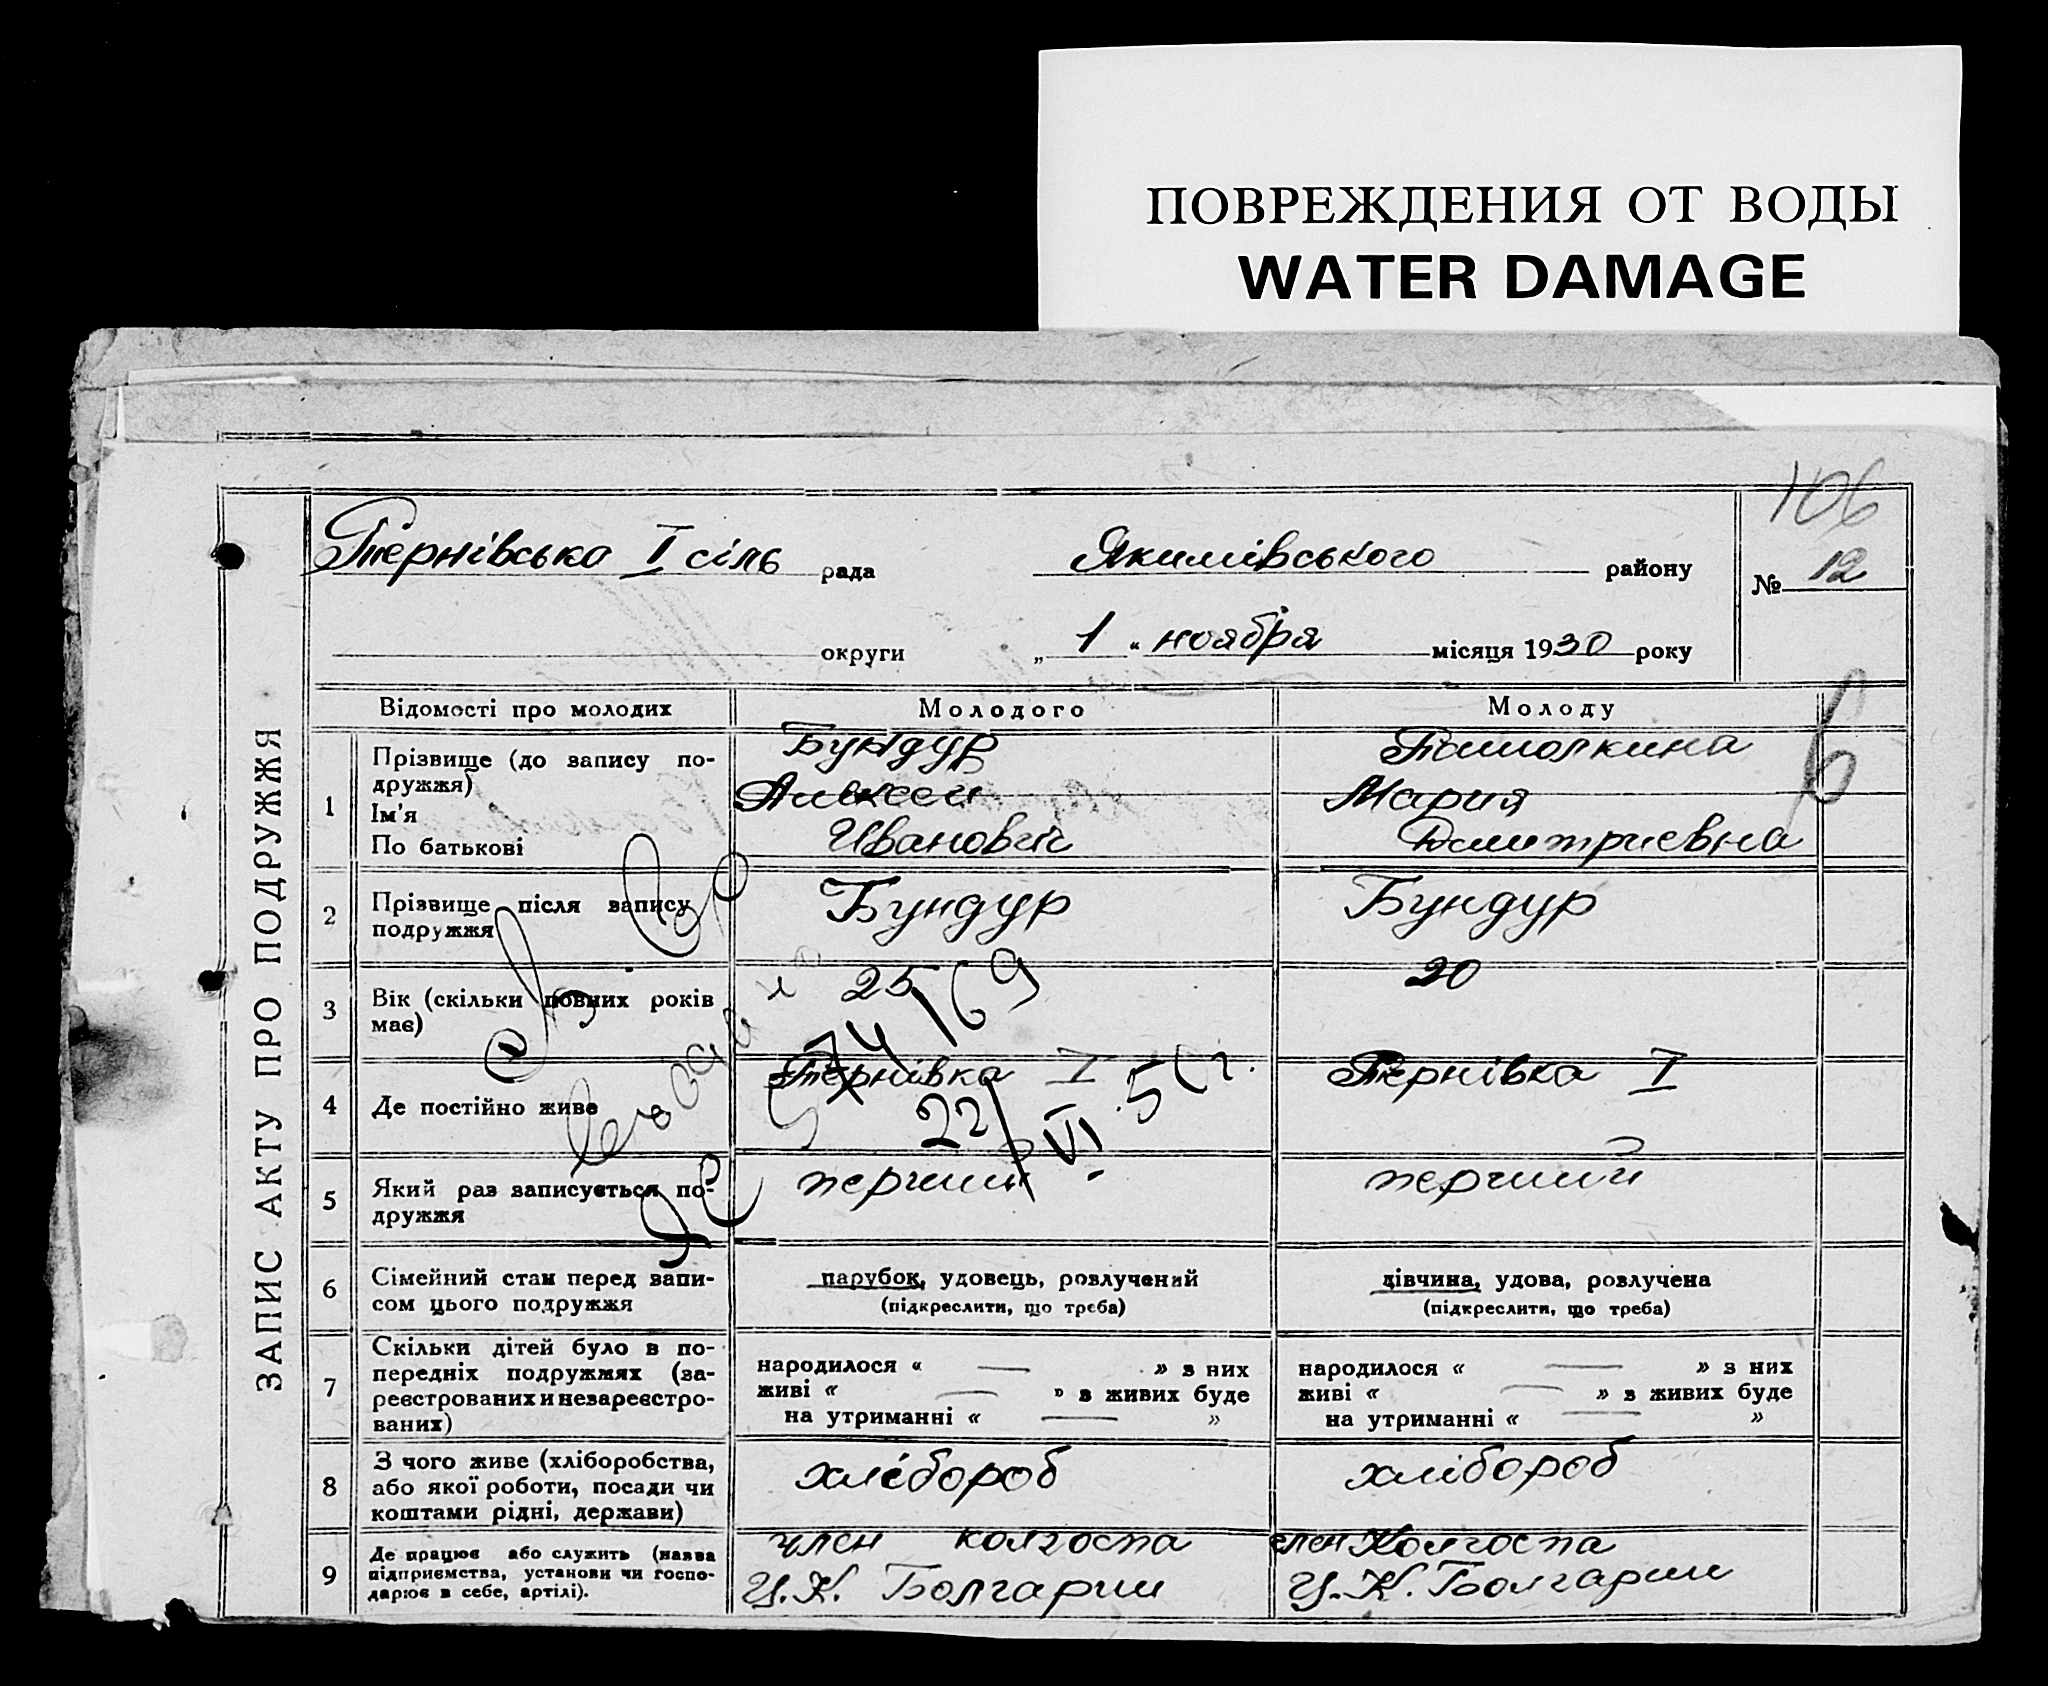 ПОВРЕЖДЕНИЯ ОТ ВОДЫ
WATER DAMAGE
106
Тернівська I сіль рада Якимівського району № 12
округи „ 1 “ ноября місяця 1930 року
ЗАПИС АКТУ ПРО ПОДРУЖЖЯ
Відомості про молодих Молодого Молоду
1 Прізвище (до запису по-
дружжя)
Ім'я
По батькові
Бундур
Алексей
Иванович
Мария
Димитриевна
2 Прізвище після запису
подружжя
Бундур Бундур
3 Вік (скільки повних років
має)
25 20
4 Де постійно живе Тернівка I Тернівка I
22/VI.
5 Який раз записується по-
дружжя
перший перший
6 Сімейний стан перед запи-
сом цього подружжя
парубок, удовець, розлучений
(підкреслити, що треба)
дівчина, удова, розлучена
(підкреслити, що треба)
7 Скільки дітей було в по-
передніх подружжях (за-
реєстрованих и незареєстро-
ваних)
народилося « — » з них
живі « — » з живих буде
на утриманні « — »
народилося « — » з них
живі « — » з живих буде
на утриманні « — »
8 З чого живе (хліборобства,
або якої роботи, посади чи
коштами рідні, держави)
хлібороб хлібороб
9 Де працює або служить (назва
підприємства, установи чи госпо-
дарює в себе, артілі).
член колгоспа
Ц.К. Болгарии
член Колгоспа
Ц.К. Болгарии